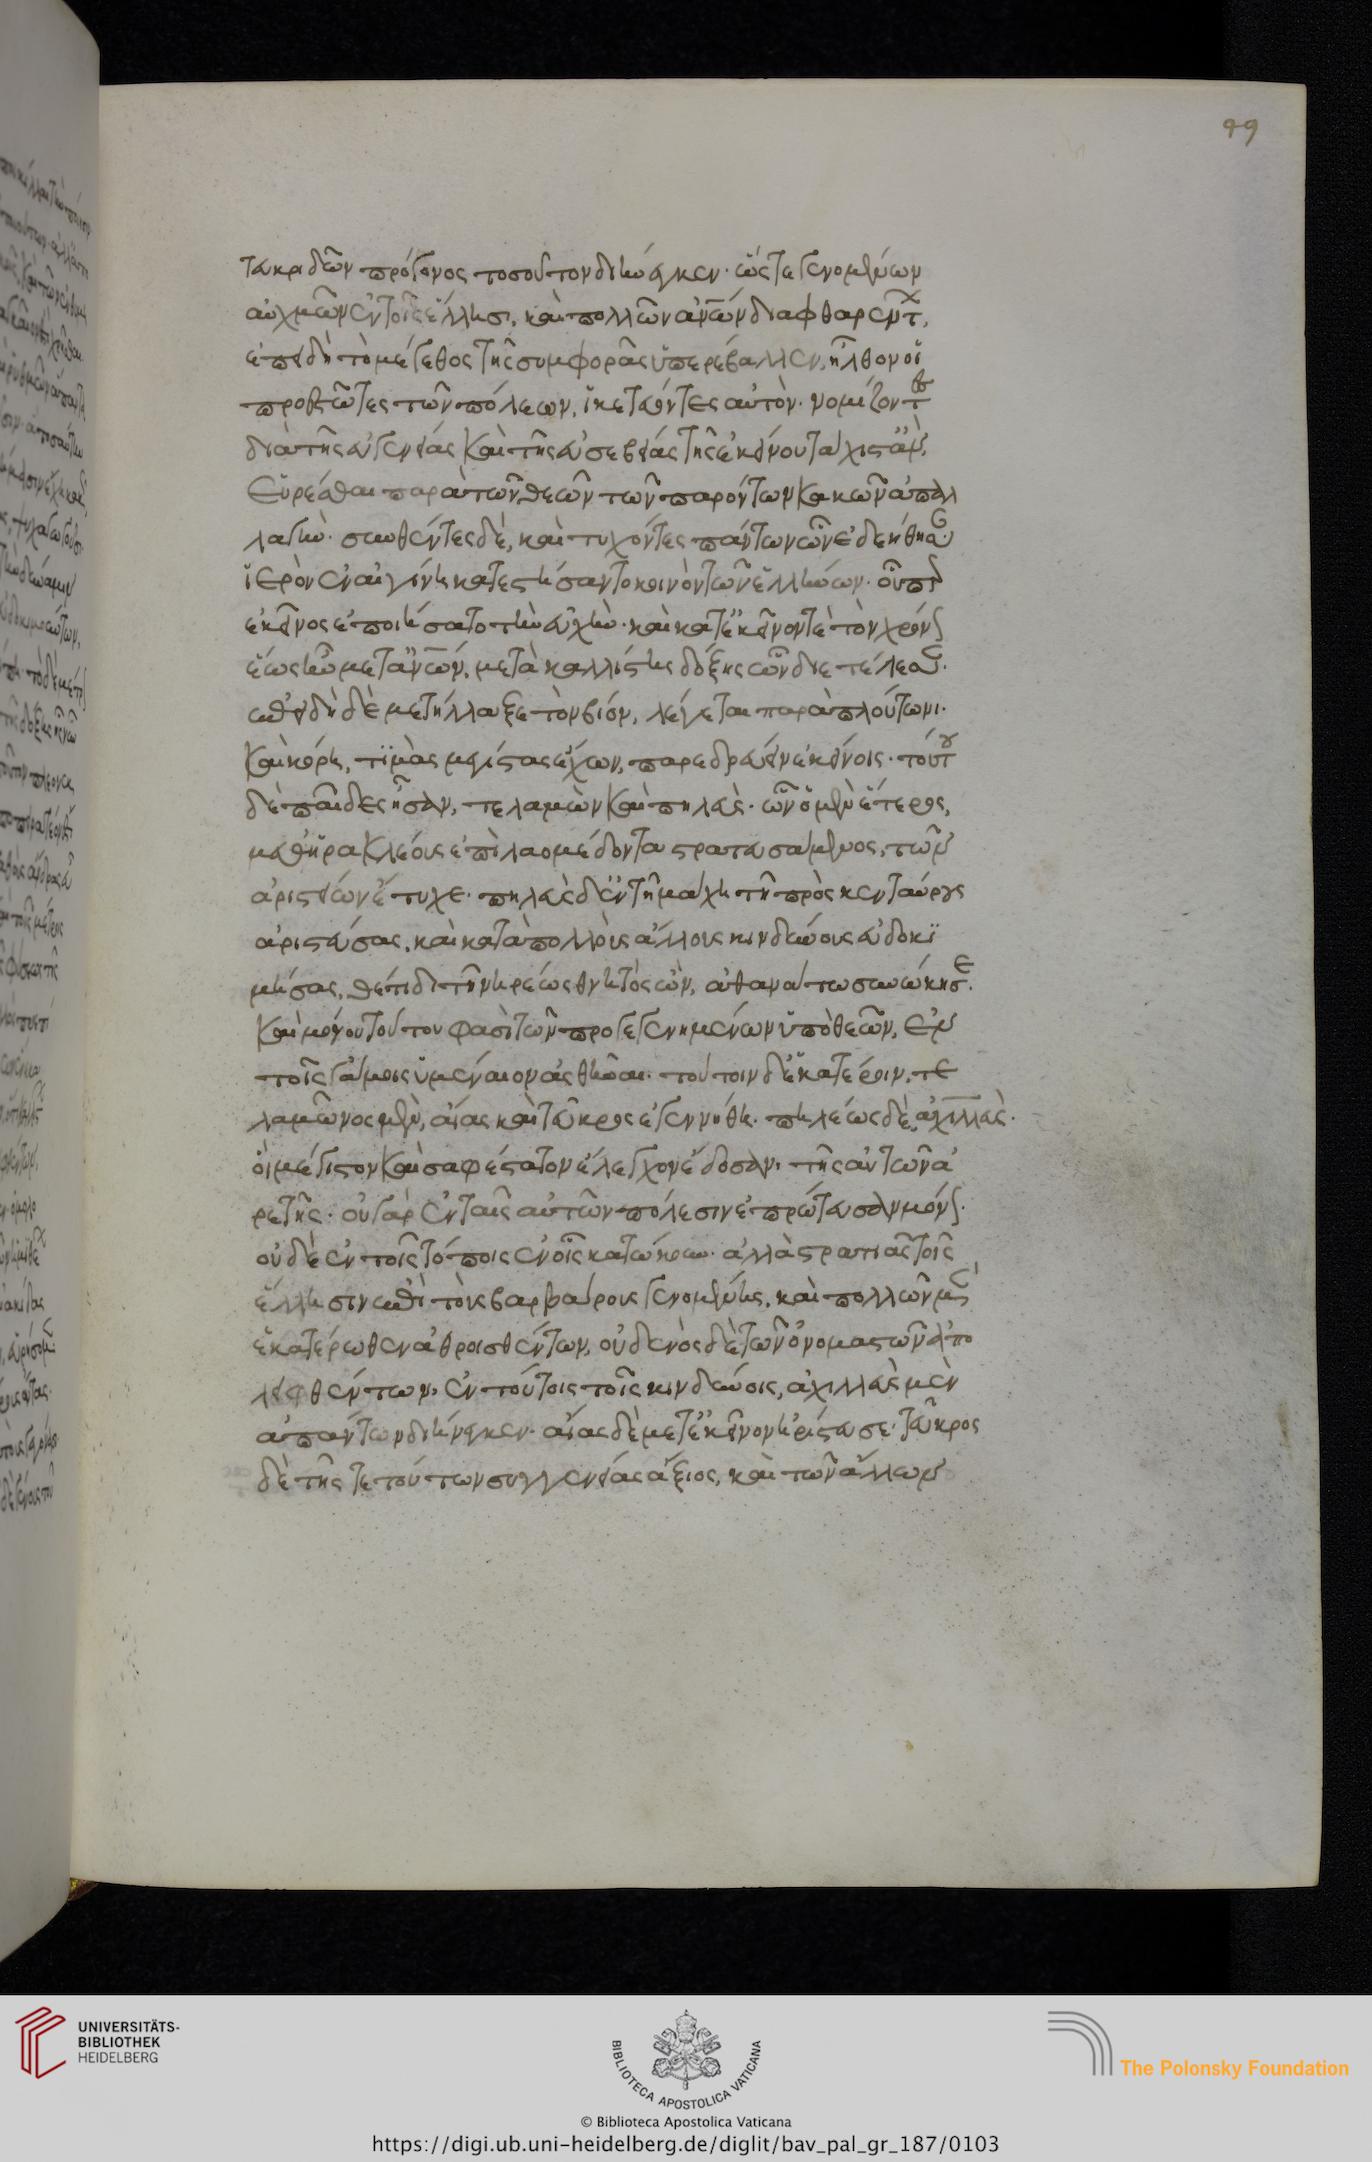 99
τευκριδῶν πρόγονος τοσοῦτον διήνεγκεν· ὥστε γενομένων
αὐχμῶν ἐν τοῖς ἕλλησι, καὶ πολλῶν ἀν̅ω̅ν διαφθαρέντ,
ἐπειδὴ τὸ μέγεθος τῆς συμφορᾶς ὑπερέβαλλεν, ἦλθον οἱ
προεστῶτες τῶν πόλεων, ἱκετεύοντες αὐτὸν· νομίζοντ
διὰ τῆς εὐγενείας καὶ τῆς εὐσεβείας τῆς ἐκείνου τάχιστ᾽ ἂν,
εὑρέσθαι παρὰ τῶν θεῶν τῶν παρόντων κακῶν ἀπαλ
λαγήν· σωθέντες δὲ, καὶ τυχόντες πάντων ὧν ἐδεήθησ·
ἱερὸν ἐν αἰγίνη κατεστήσαντο κοινὸν τῶν ἑλλήνων· οὗπερ
ἐκεῖνος ἐποιήσατο τὴν εὐχὴν· καὶ κατ᾽ ἐκεῖνόν τε τὸν χρόν
ἕως ἦν μετ᾽ ἀν̅ω̅ν, μετὰ καλλίστης δόξης ὢν διετέλεσ·
ἐπειδὴ δὲ μετήλλαξε τὸν βίον, λέγεται παρὰ πλούτωνι·
καὶ κόρη, τιμὰς μεγίστας ἔχων, παρεδρεύειν ἐκείνοις· τούτ
δὲ παῖδες ἦσαν, τελαμὼν καὶ πηλεὺς· ὧν ὁ μὲν ἕτερος,
μεθ᾽ ἡρακλέους ἐπὶ λαομέδοντα στρατευσάμενος, τῶν
ἀριστείων ἔτυχε· πηλεὺς δ᾽ ἐν τῆ μάχη τῆ πρὸς κενταύρους
ἀριστεύσας, καὶ κατὰ πολλοὺς ἄλλους κινδύνους εὐδοκι
μήσας, θέτιδι τῆ νηρέως θνητὸς ὢν, ἀθανάτω συνώκησ.
καὶ μόνου τούτου φασὶ τῶν προγεγενημένων ὑπὸ θεῶν, ἐν
τοῖς γάμοις ὑμέναιον ἀσθῆναι· τούτοιν δ᾽ ἑκατέροιν, τε
λαμῶνος μὲν, αἴας καὶ τεῦκρος ἐγεννήθη· πηλέως δὲ, ἀχιλλεὺς·
οἳ μέγιστον καὶ σαφέστατον ἔλεγχον ἔδοσαν, τῆς αὑτῶν ἀ
ρετῆς· οὐ γὰρ ἐν ταῖς αὑτῶν πόλεσιν ἐπρώτευσαν μόν·
οὐδὲ ἐν τοῖς τόποις ἐν οἷς κατώκουν· ἀλλὰ στρατιᾶς τοῖς
ἕλλησιν ἐπὶ τοὺς βαρβάρους γενομένης, καὶ πολλῶν μὲν
ἑκατέρωθεν ἀθροισθέντων, οὐδενὸς δὲ τῶν ὀνομαστῶν ἀπο
λειφθέντων, ἐν τούτοις τοῖς κινδύνοις, ἀχιλλεὺς μὲν
ἁπάντων διήνεγκεν· αἴας δὲ μετ᾽ ἐκεῖνον ἠρίστευσε· τεῦκρος
δὲ τῆς τε τούτων συγγενείας ἄξιος, καὶ τῶν ἄλλων
UNIVERSITÄTS-
BIBLIOTHEK
HEIDELBERG
BIBLIOTECA APOSTOLICA VATICANA
The Polonsky Foundation
© Biblioteca Apostolica Vaticana
https://digi.ub.uni-heidelberg.de/diglit/bav_pal_gr_187/0103